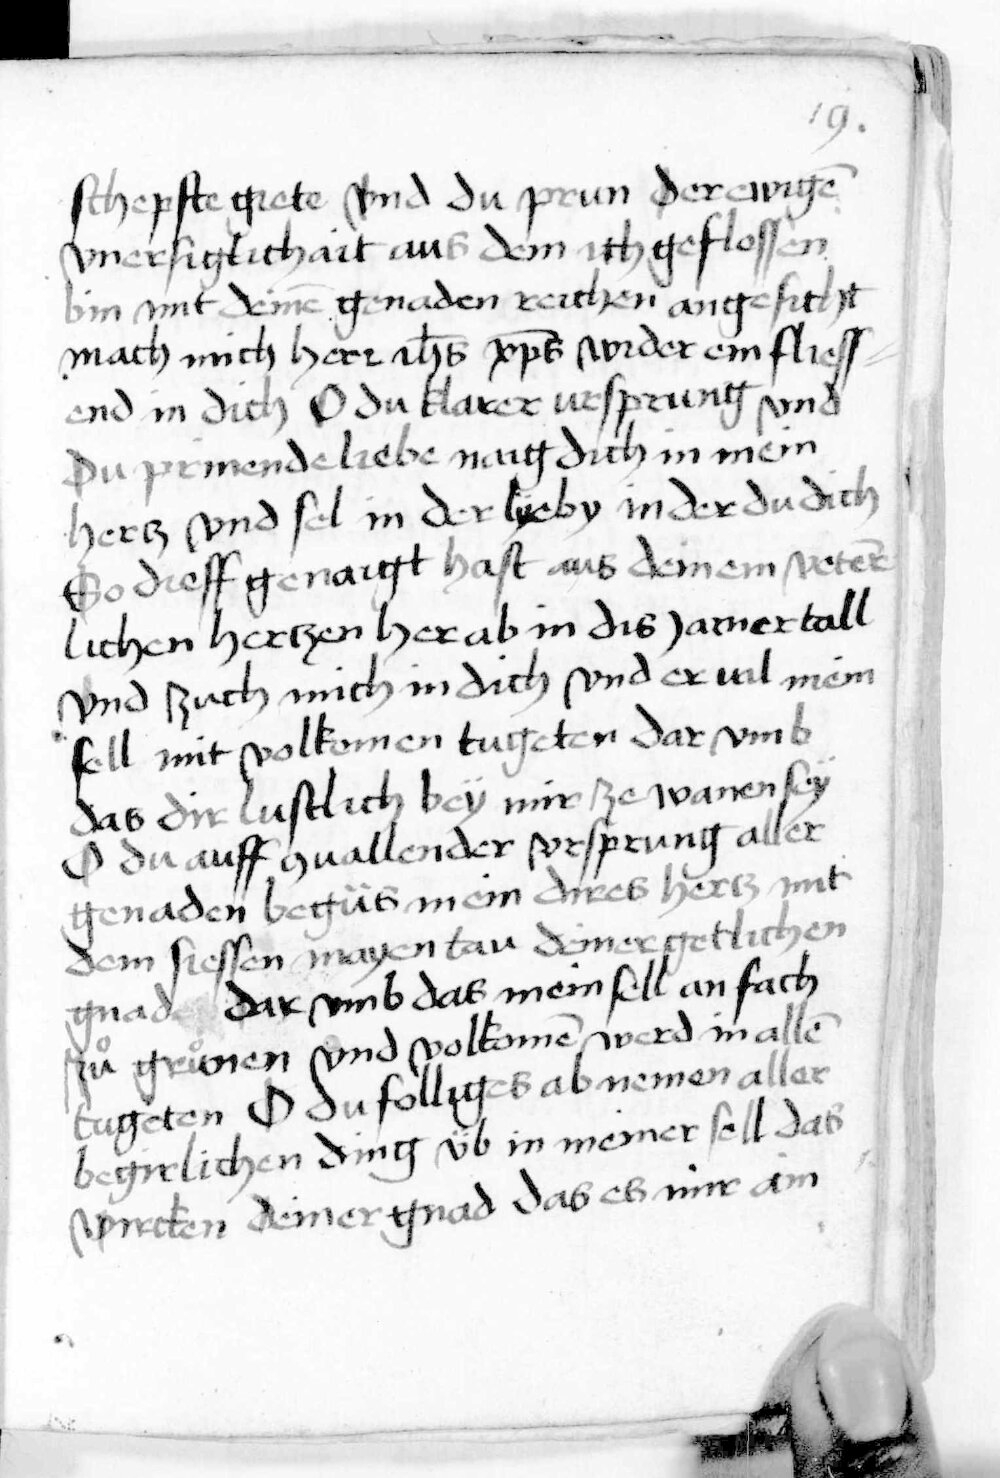 19.
schepfte giete vnd du prun der ewigē
vnersiglichait aus dem ich geflossen
bin mit deinē genaden reichen angesicht
mach mich herr ihs xps wider ein fliess=
end in dich O du klarer ursprung vnd
du prinende liebe naig dich in mein
hertz vnd sel in der lyeby in der du dich
So dieff genaigt hast aus deinem veterē
lichen hertzen her ab in dis jamertall
vnd zuch mich in dich vnd er uil mein
sell mit volkomen tugeten dar vmb
das dir lustlich beÿ mir ze wanen seÿ
O du auff quallender vrsprung aller
genaden begüs mein dires hertz mit
dem siessen mayen tau deiner getlichen
gnade dar vmb das mein sell an fach
zů grůnen vnd volkomē werd in allē
tugeten O du folliges ab nemen aller
begirlichen ding üb in meiner sell das
wircken deiner gnad das es mir ain